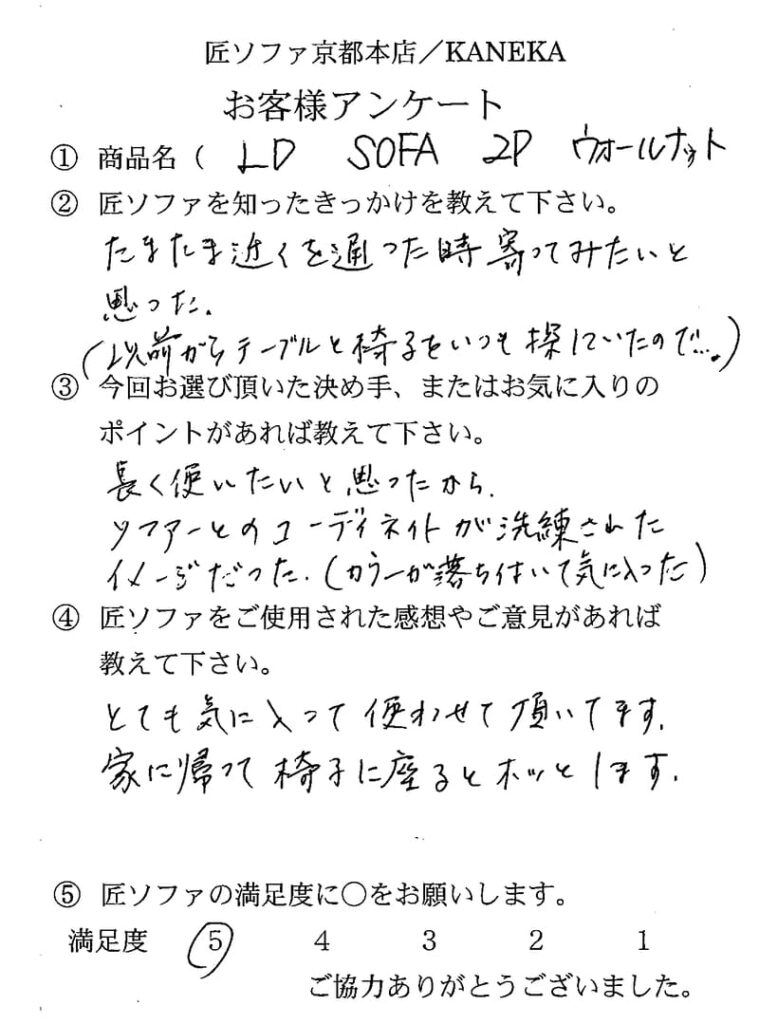 匠ソファ京都本店／KANEKA
お客様アンケート
① 商品名（ LD SOFA 2P ウォールナット
② 匠ソファを知ったきっかけを教えて下さい。
たまたま近くを通った時寄ってみたいと
思った.
(以前からテーブルと椅子をいつも探していたので…。)
③ 今回お選び頂いた決め手、またはお気に入りの
ポイントがあれば教えて下さい。
長く使いたいと思ったから.
ソファーとのコーディネイトが洗練された
イメージだった.(カラーが落ち付いて気に入った)
④ 匠ソファをご使用された感想やご意見があれば
教えて下さい。
とても気に入って使わせて頂いてます.
家に帰って椅子に座るとホッとします.
⑤ 匠ソファの満足度に〇をお願いします。
満足度 5 4 3 2 1
ご協力ありがとうございました。